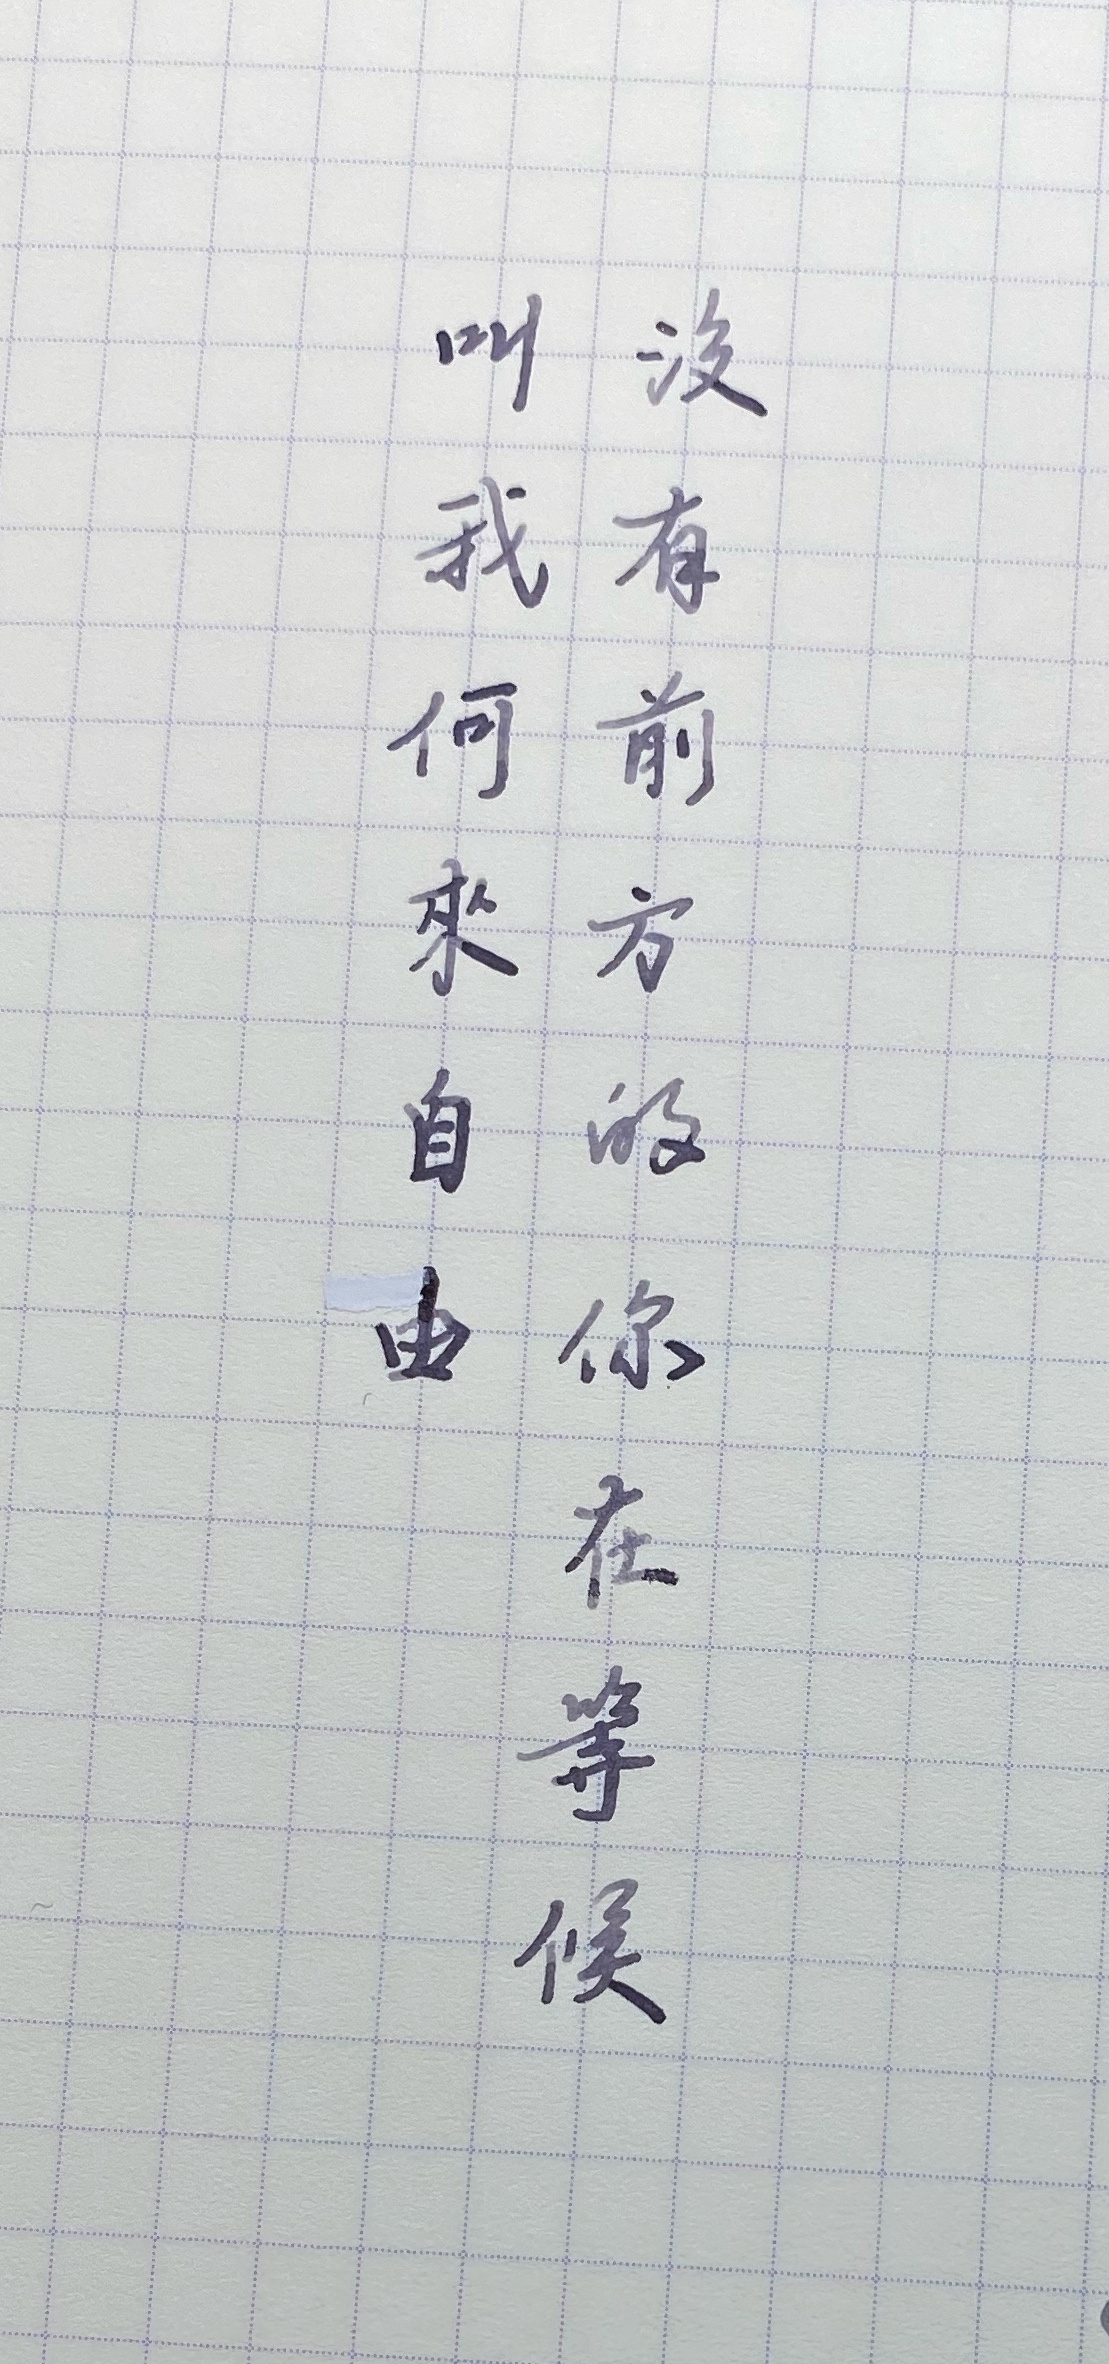 沒有前方的你在等候
叫我何來自由